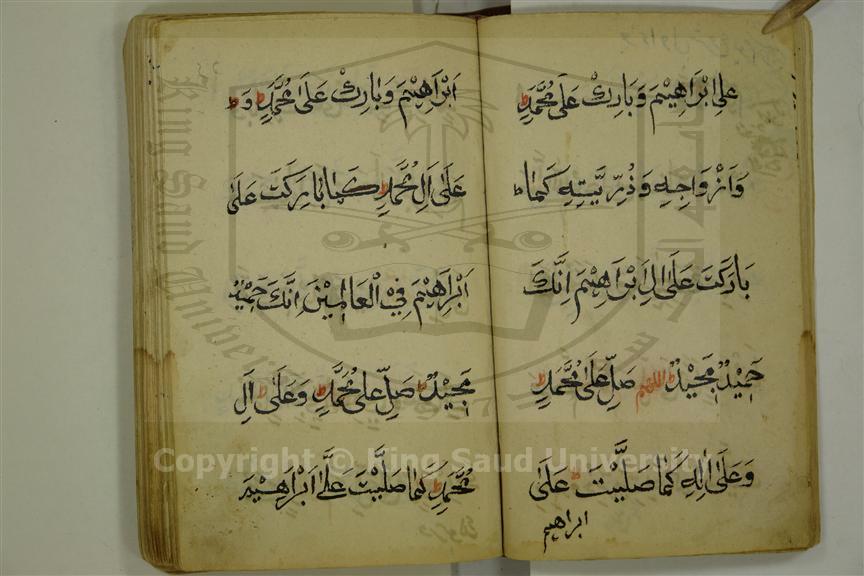 على ابراهيم وبارك على محمد
وازواجه وذريته كما
باركت على ال ابراهيم انك
حميد مجيد اللهم صل على محمد
وعلى اله كما صليت على
ابراهيم
ابراهيم وبارك على محمد و
على ال محمد كما باركت على
ابراهيم في العالمين انك حميد
مجيد صل على محمد وعلى ال
محمد كما صليت على ابراهيم
Copyright © King Saud University
King Saud University